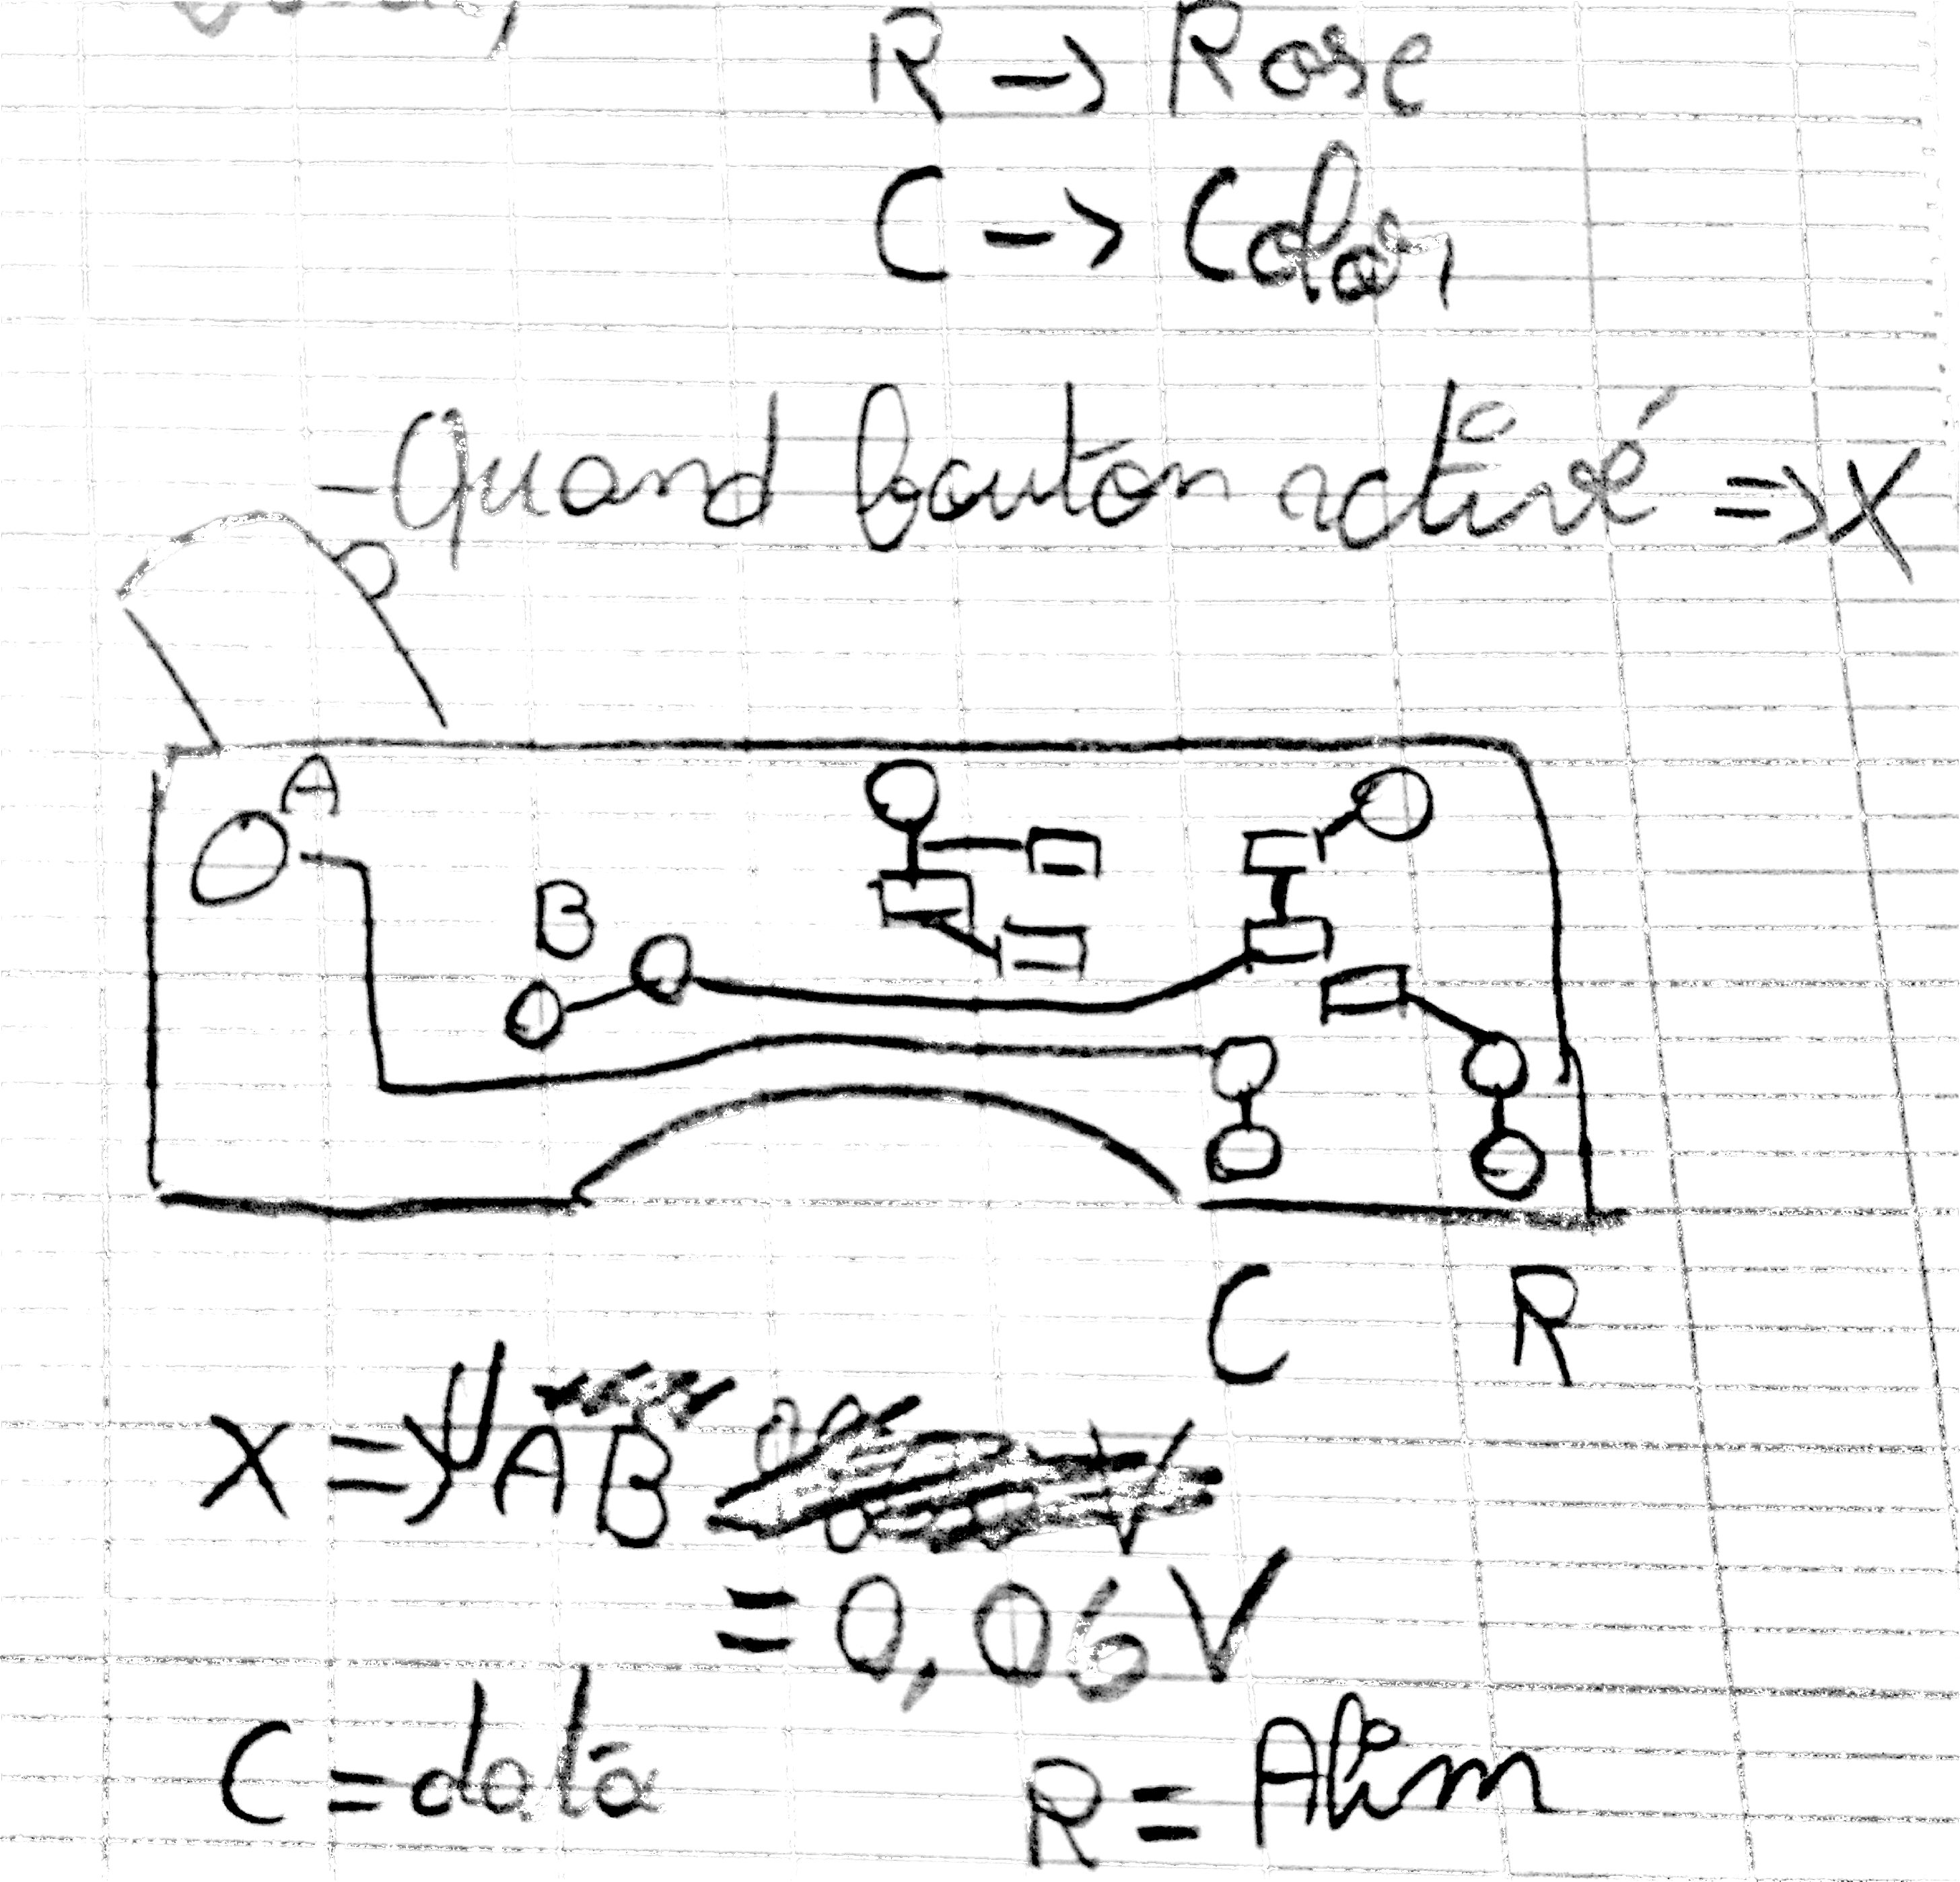 R -> Rose
C -> Color
- Quand bouton activé => X
A
B
C R
X => UAB
= 0,06V
C = data
R = Alim